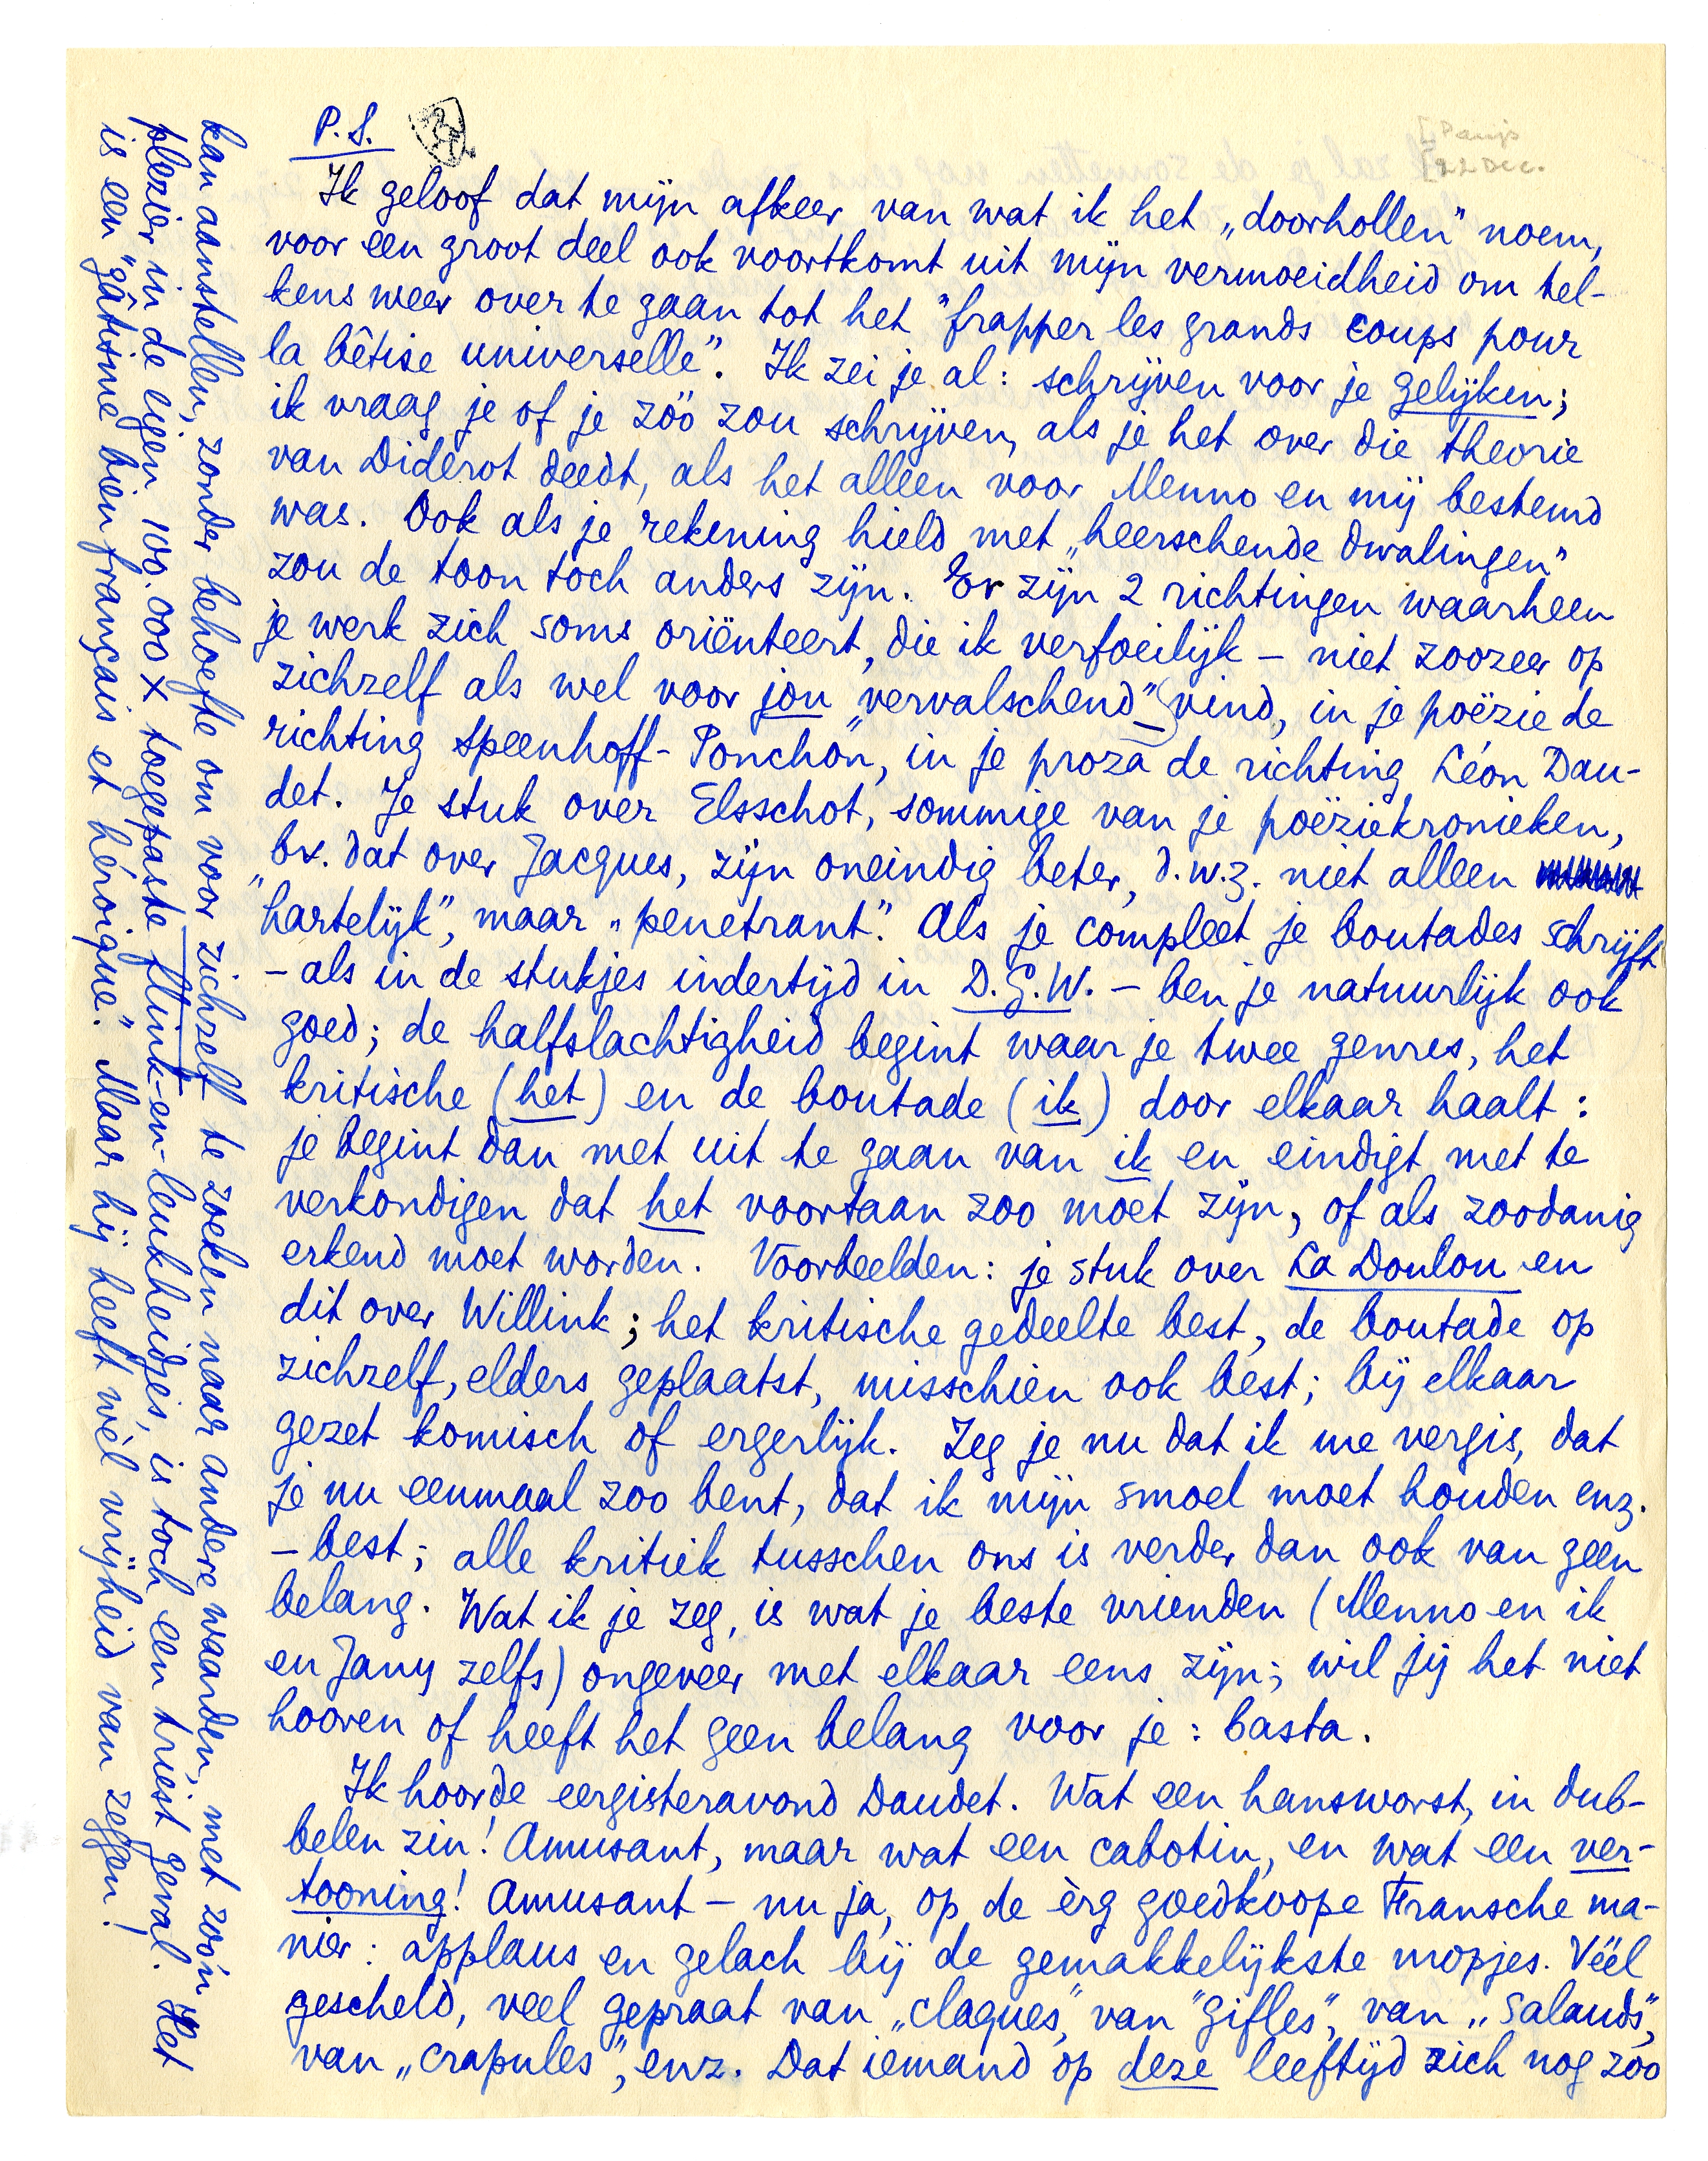 P.S.
[Parijs
[22 Dec.
Ik geloof dat mijn afkeer van wat ik het „doorhollen” noem,
voor een groot deel ook voortkomt uit mijn vermoeidheid om tel-
kens weer over te gaan tot het "frapper les grands coups pour
la bêtise universelle". Ik zei je al: schrijven voor je gelijken;
ik vraag je of je zóó zou schrijven, als je het over die theorie
van Diderot deedt, als het alleen voor Menno en mij bestemd
was. Ook als je rekening hield met „heerschende dwalingen”
zou de toon toch anders zijn. Er zijn 2 richtingen waarheen
je werk zich soms oriënteert, die ik verfoeilijk – niet zoozeer op
zichzelf als wel voor jou „vervalschend” vind, in je poëzie de
richting Speenhoff-Ponchon, in je proza de richting Léon Dau-
det. Je stuk over Elsschot, sommige van je poëziekronieken,
bv. dat over Jacques, zijn oneindig beter, d.w.z. niet alleen
„hartelijk”, maar „penetrant”. Als je compleet je boutades schrijft
– als in de stukjes indertijd in D.G.W. – ben je natuurlijk ook
goed; de halfslachtigheid begint waar je twee genres, het
kritische (het) en de boutade (ik) door elkaar haalt:
je begint dan met uit te gaan van ik en eindigt met te
verkondigen dat het voortaan zoo moet zijn, of als zoodanig
erkend moet worden. Voorbeelden: je stuk over La Doulou en
dit over Willink; het kritische gedeelte best, de boutade op
zichzelf, elders geplaatst, misschien ook best; bij elkaar
gezet komisch of ergerlijk. Zeg je nu dat ik me vergis, dat
je nu eenmaal zoo bent, dat ik mijn smoel moet houden enz.
– best; alle kritiek tusschen ons is verder dan ook van geen
belang. Wat ik je zeg, is wat je beste vrienden (Menno en ik
en Jany zelfs) ongeveer met elkaar eens zijn; wil jij het niet
hooren of heeft het geen belang voor je: basta.
Ik hoorde eergisteravond Daudet. Wat een hansworst, in dub-
belen zin! Amusant, maar wat een cabotin, en wat een ver-
tooning! Amusant – nu ja, op de èrg goedkoope Fransche ma-
nier: applaus en gelach bij de gemakkelijkste mopjes. Véél
gescheld, veel gepraat van „claques”, van "gifles", van „salauds”,
van „crapules”, enz. Dat iemand op deze leeftijd zich nog zóó
kan aanstellen, zonder behoefte om voor zichzelf te zoeken naar andere waarden, met zoo'n
plezier in de eigen 100.000 x toegepaste flink-en-leukheidjes, is toch een triest geval. Het
is een "gâtisme bien français et héroïque". Maar hij heeft wél vrijheid van zeggen!